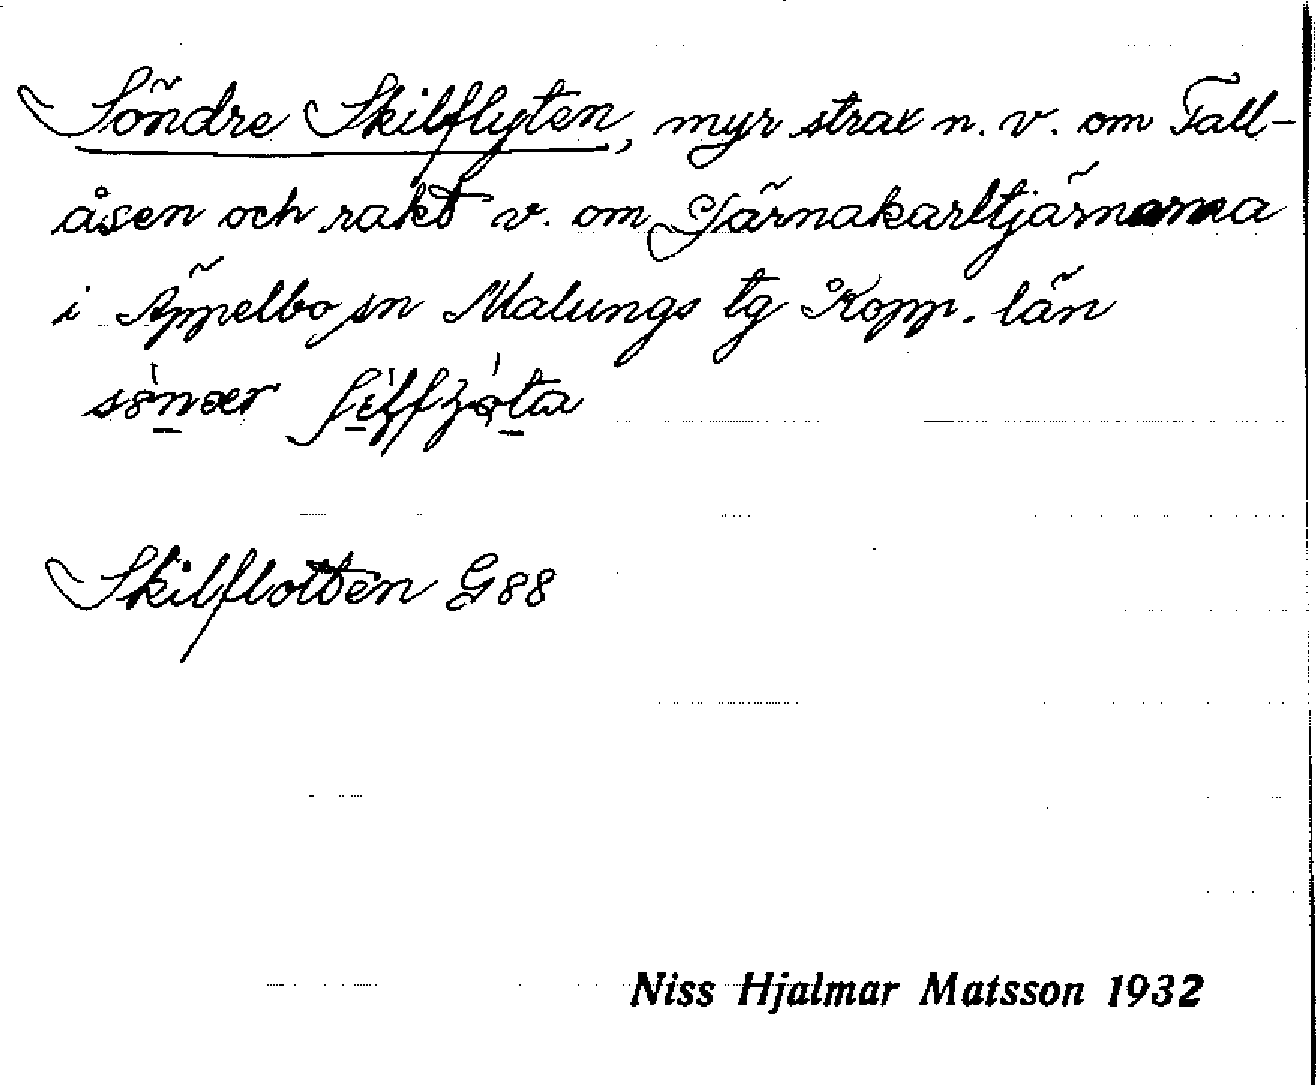 Söndre Skilflyten, myr strax n. v. om Tall-
åsen och rakt v. om Järnakarltjärnarna
i Äppelbo sn Malungs tg Kopp. län
Skilflotten G88
Niss Hjalmar Matsson 1932